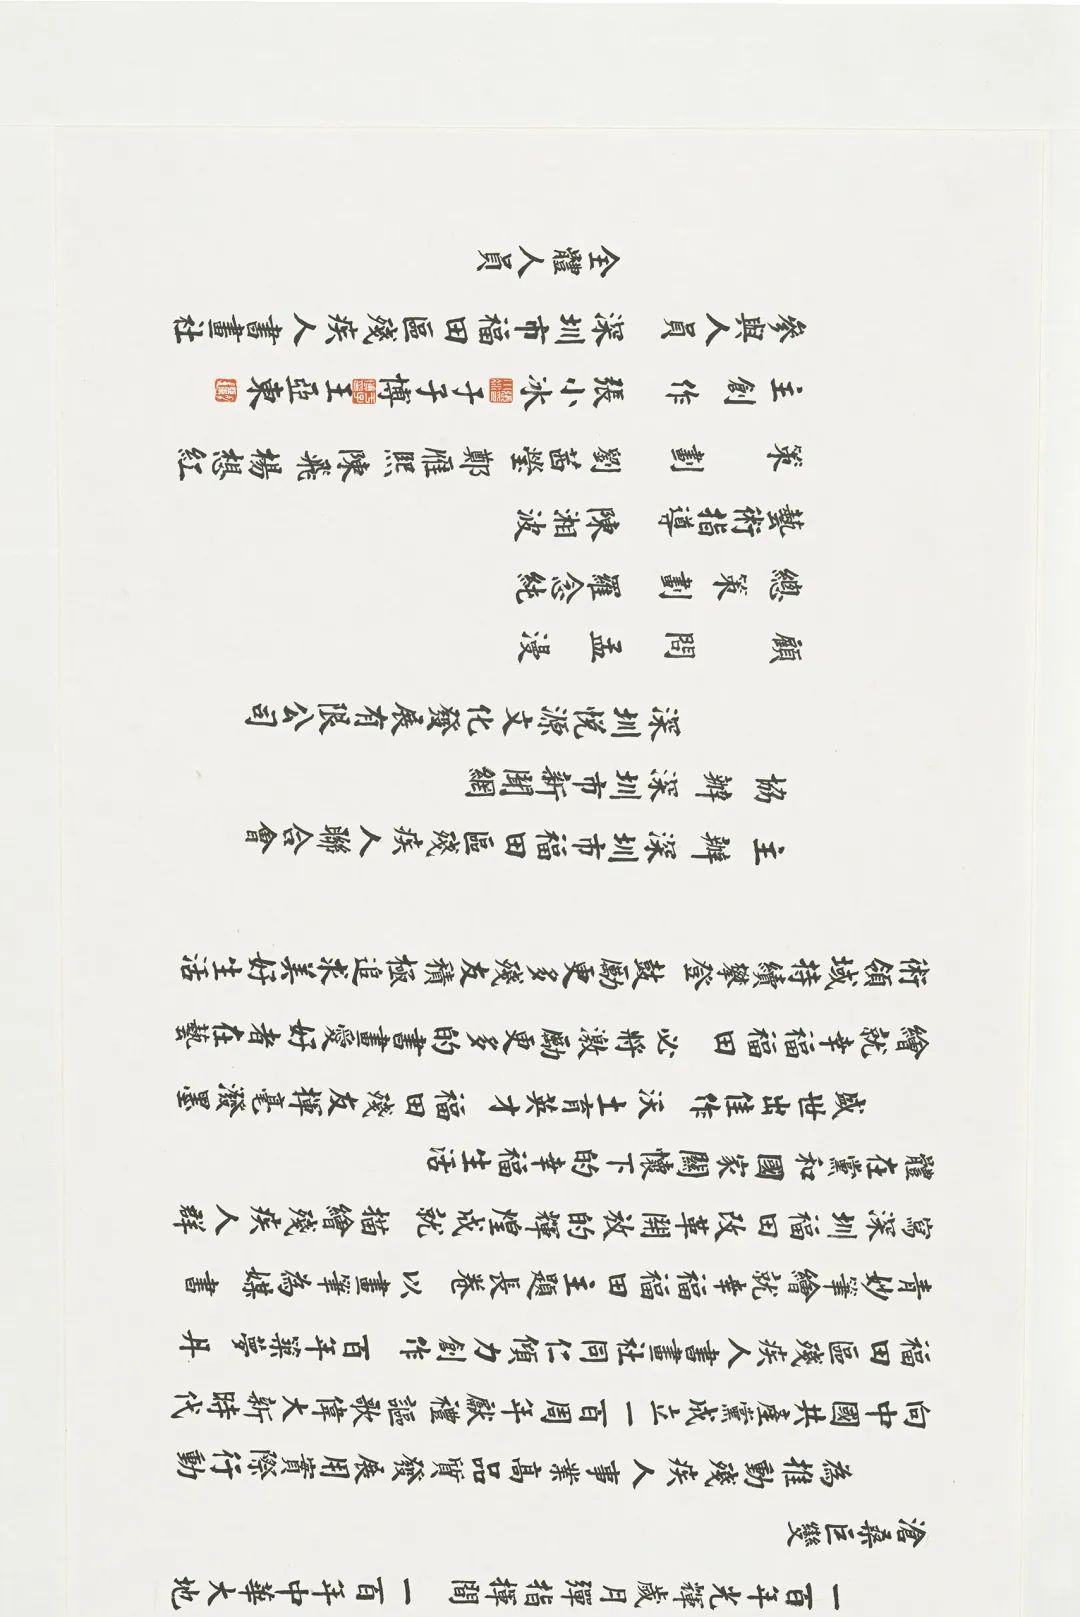 一百年光輝歲月彈指揮間 一百年中華大地
滄桑巨變
為推動殘疾人事業高品質發展用實際行動
向中國共產黨成立一百周年獻禮謳歌偉大新時代
福田區殘疾人書畫社同仁傾力創作 百年築夢 丹
青妙筆繪就幸福福田主題長卷 以畫筆為媒 書
寫深圳福田改革開放的輝煌成就 描繪殘疾人群
體在黨和國家關懷下的幸福生活
盛世出佳作 沃土育英才 福田殘友揮毫潑墨
繪就幸福福田 必將激勵更多的書畫愛好者在藝
術領域持續攀登 鼓勵更多殘友積極追求美好生活
主辦 深圳市福田區殘疾人聯合會
協辦 深圳市新聞網
深圳悅源文化發展有限公司
顧問 孟漫
總策劃 羅念純
藝術指導 陳湘波
策劃 劉茜瑩 鄭雁熙 陳飛 楊想紅
主創作 張小冰 于子博 王亞東
參與人員 深圳市福田區殘疾人書畫社
全體人員